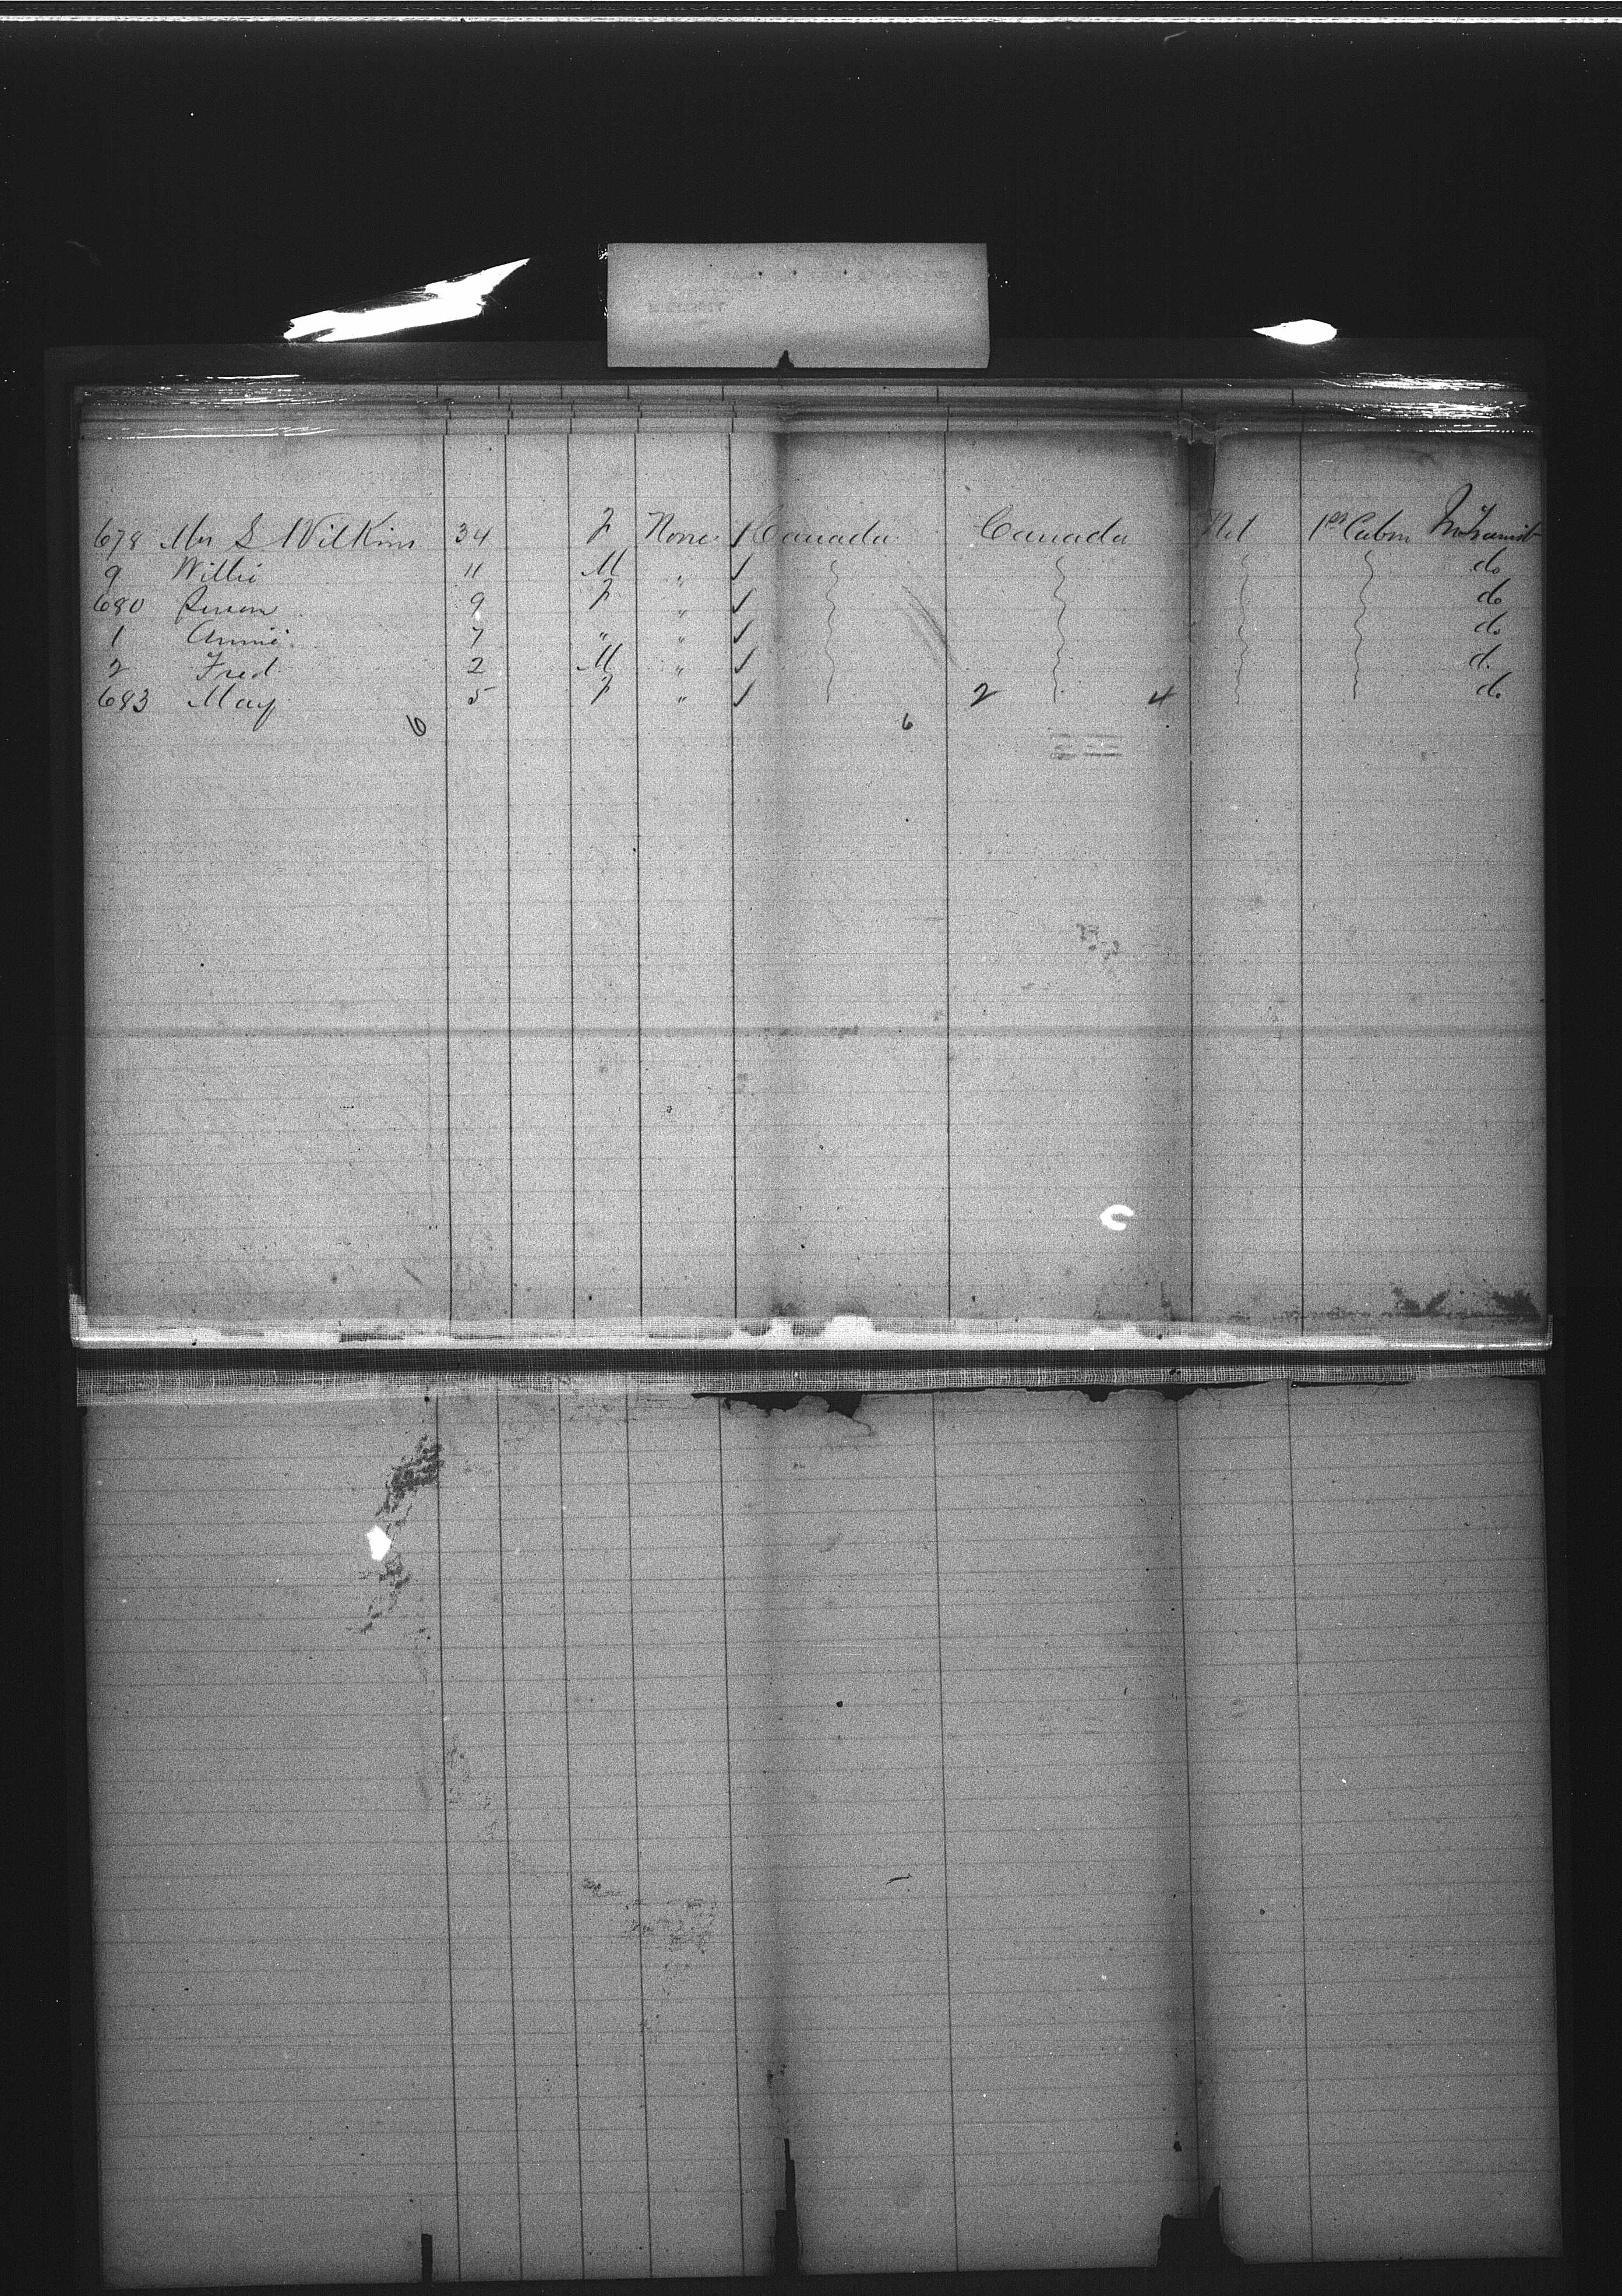 678 Mrs S Wilkins 34 F None / Canada Canada Nil 1st Cabin In Transit
9 Willie 11 M " / do
680 9 F " / do
1 Annie 7 " " / do
2 Fred 2 M " / d.
683 May 5 F " / 2 4 do
6 6